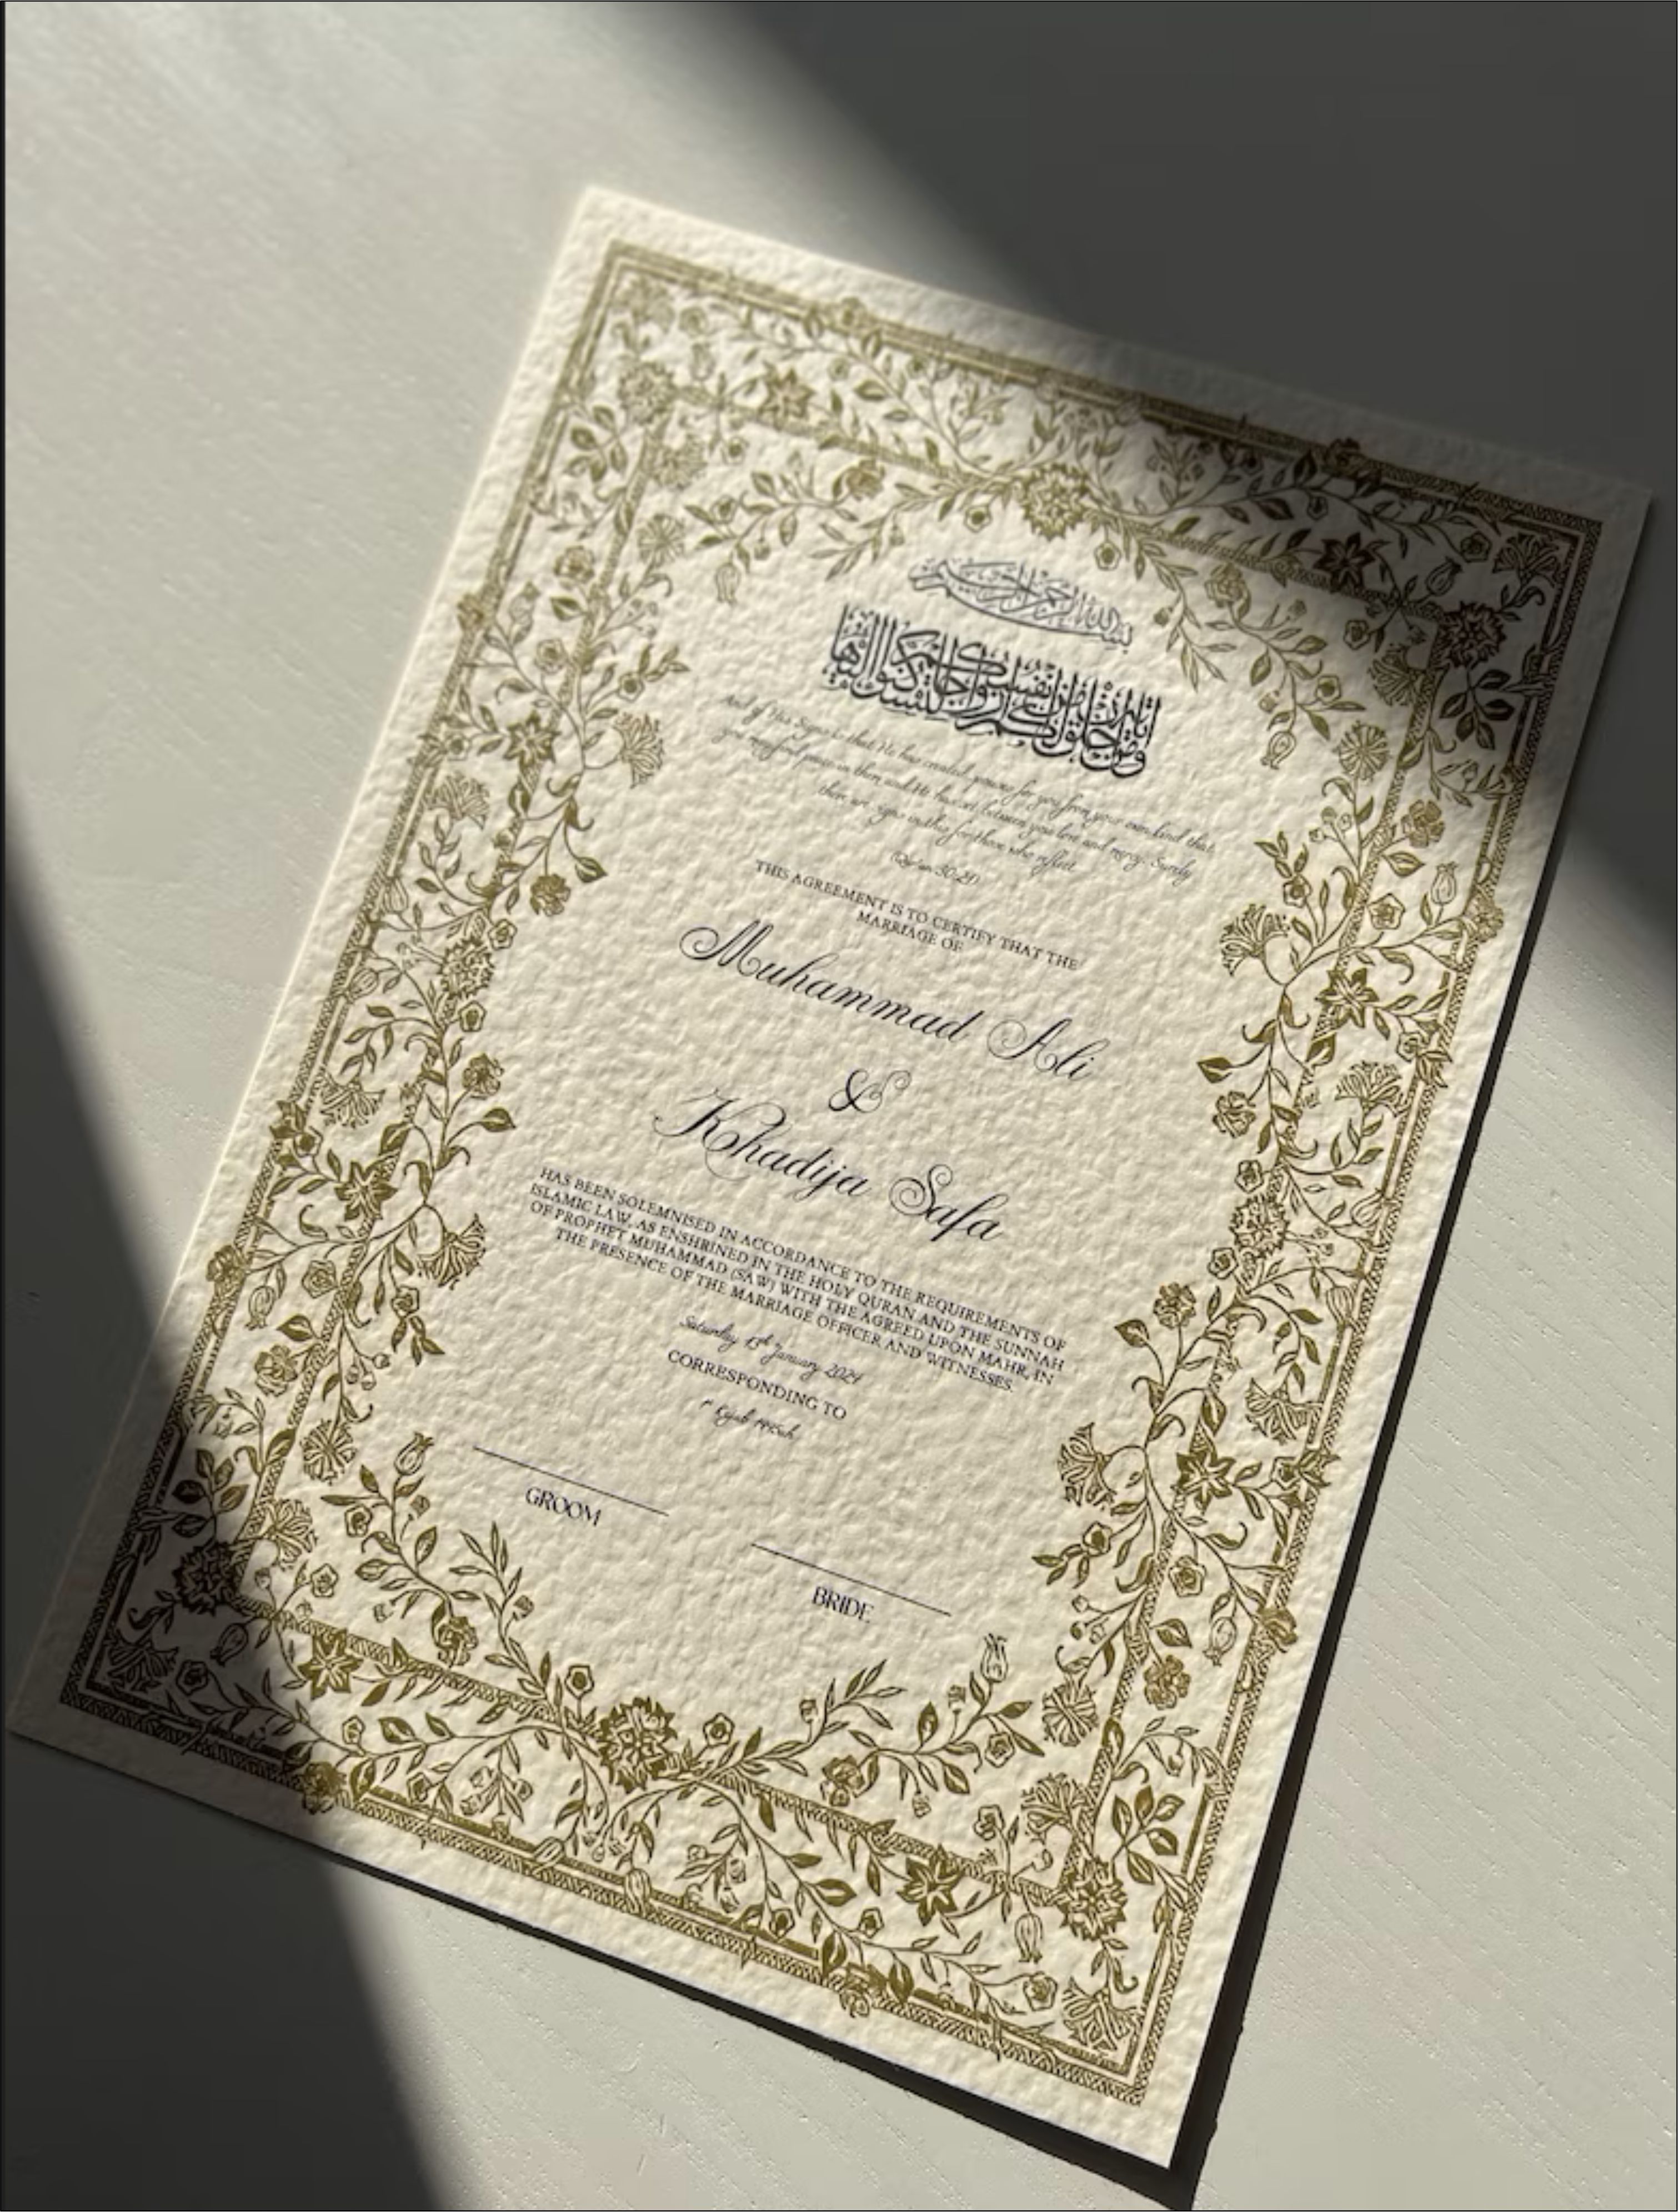 بسم الله الرحمن الرحيم
ومن آياته أن خلق لكم من أنفسكم أزواجا لتسكنوا إليها
And of His Signs is that He has created spouses for you from your own kind that
you may find peace in them and He has set between you love and mercy. Surely
there are signs in this for those who reflect
THIS AGREEMENT IS TO CERTIFY THAT THE
MARRIAGE OF
Muhammad Ali
&
Khadija Safa
HAS BEEN SOLEMNISED IN ACCORDANCE TO THE REQUIREMENTS OF
ISLAMIC LAW, AS ENSHRINED IN THE HOLY QURAN AND THE SUNNAH
OF PROPHET MUHAMMAD (SAW) WITH THE AGREED UPON MAHR, IN
THE PRESENCE OF THE MARRIAGE OFFICER AND WITNESSES.
Saturday 13th January 2024
CORRESPONDING TO
1st Rajab 1445ah
GROOM
BRIDE